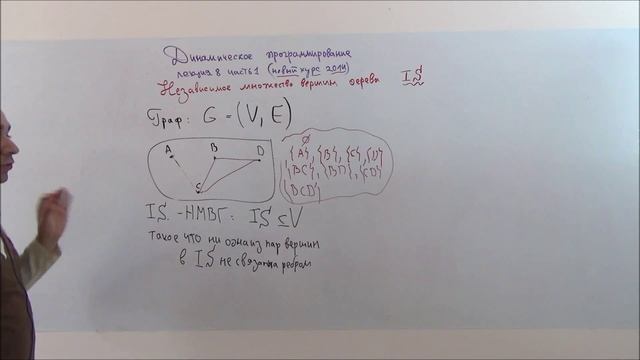 Динамическое программирование
лекция 8 часть 1 (новый курс 2014)
Независимое множество вершин дерева IS
Граф: G = (V, E)
A B D
C
∅
{A}, {B}, {C}, {D}
{BC}, {BD}, {CD}
{BCD}
IS - НМВГ: IS ⊆ V
Такое что ни одна из пар вершин
в IS не связана ребром